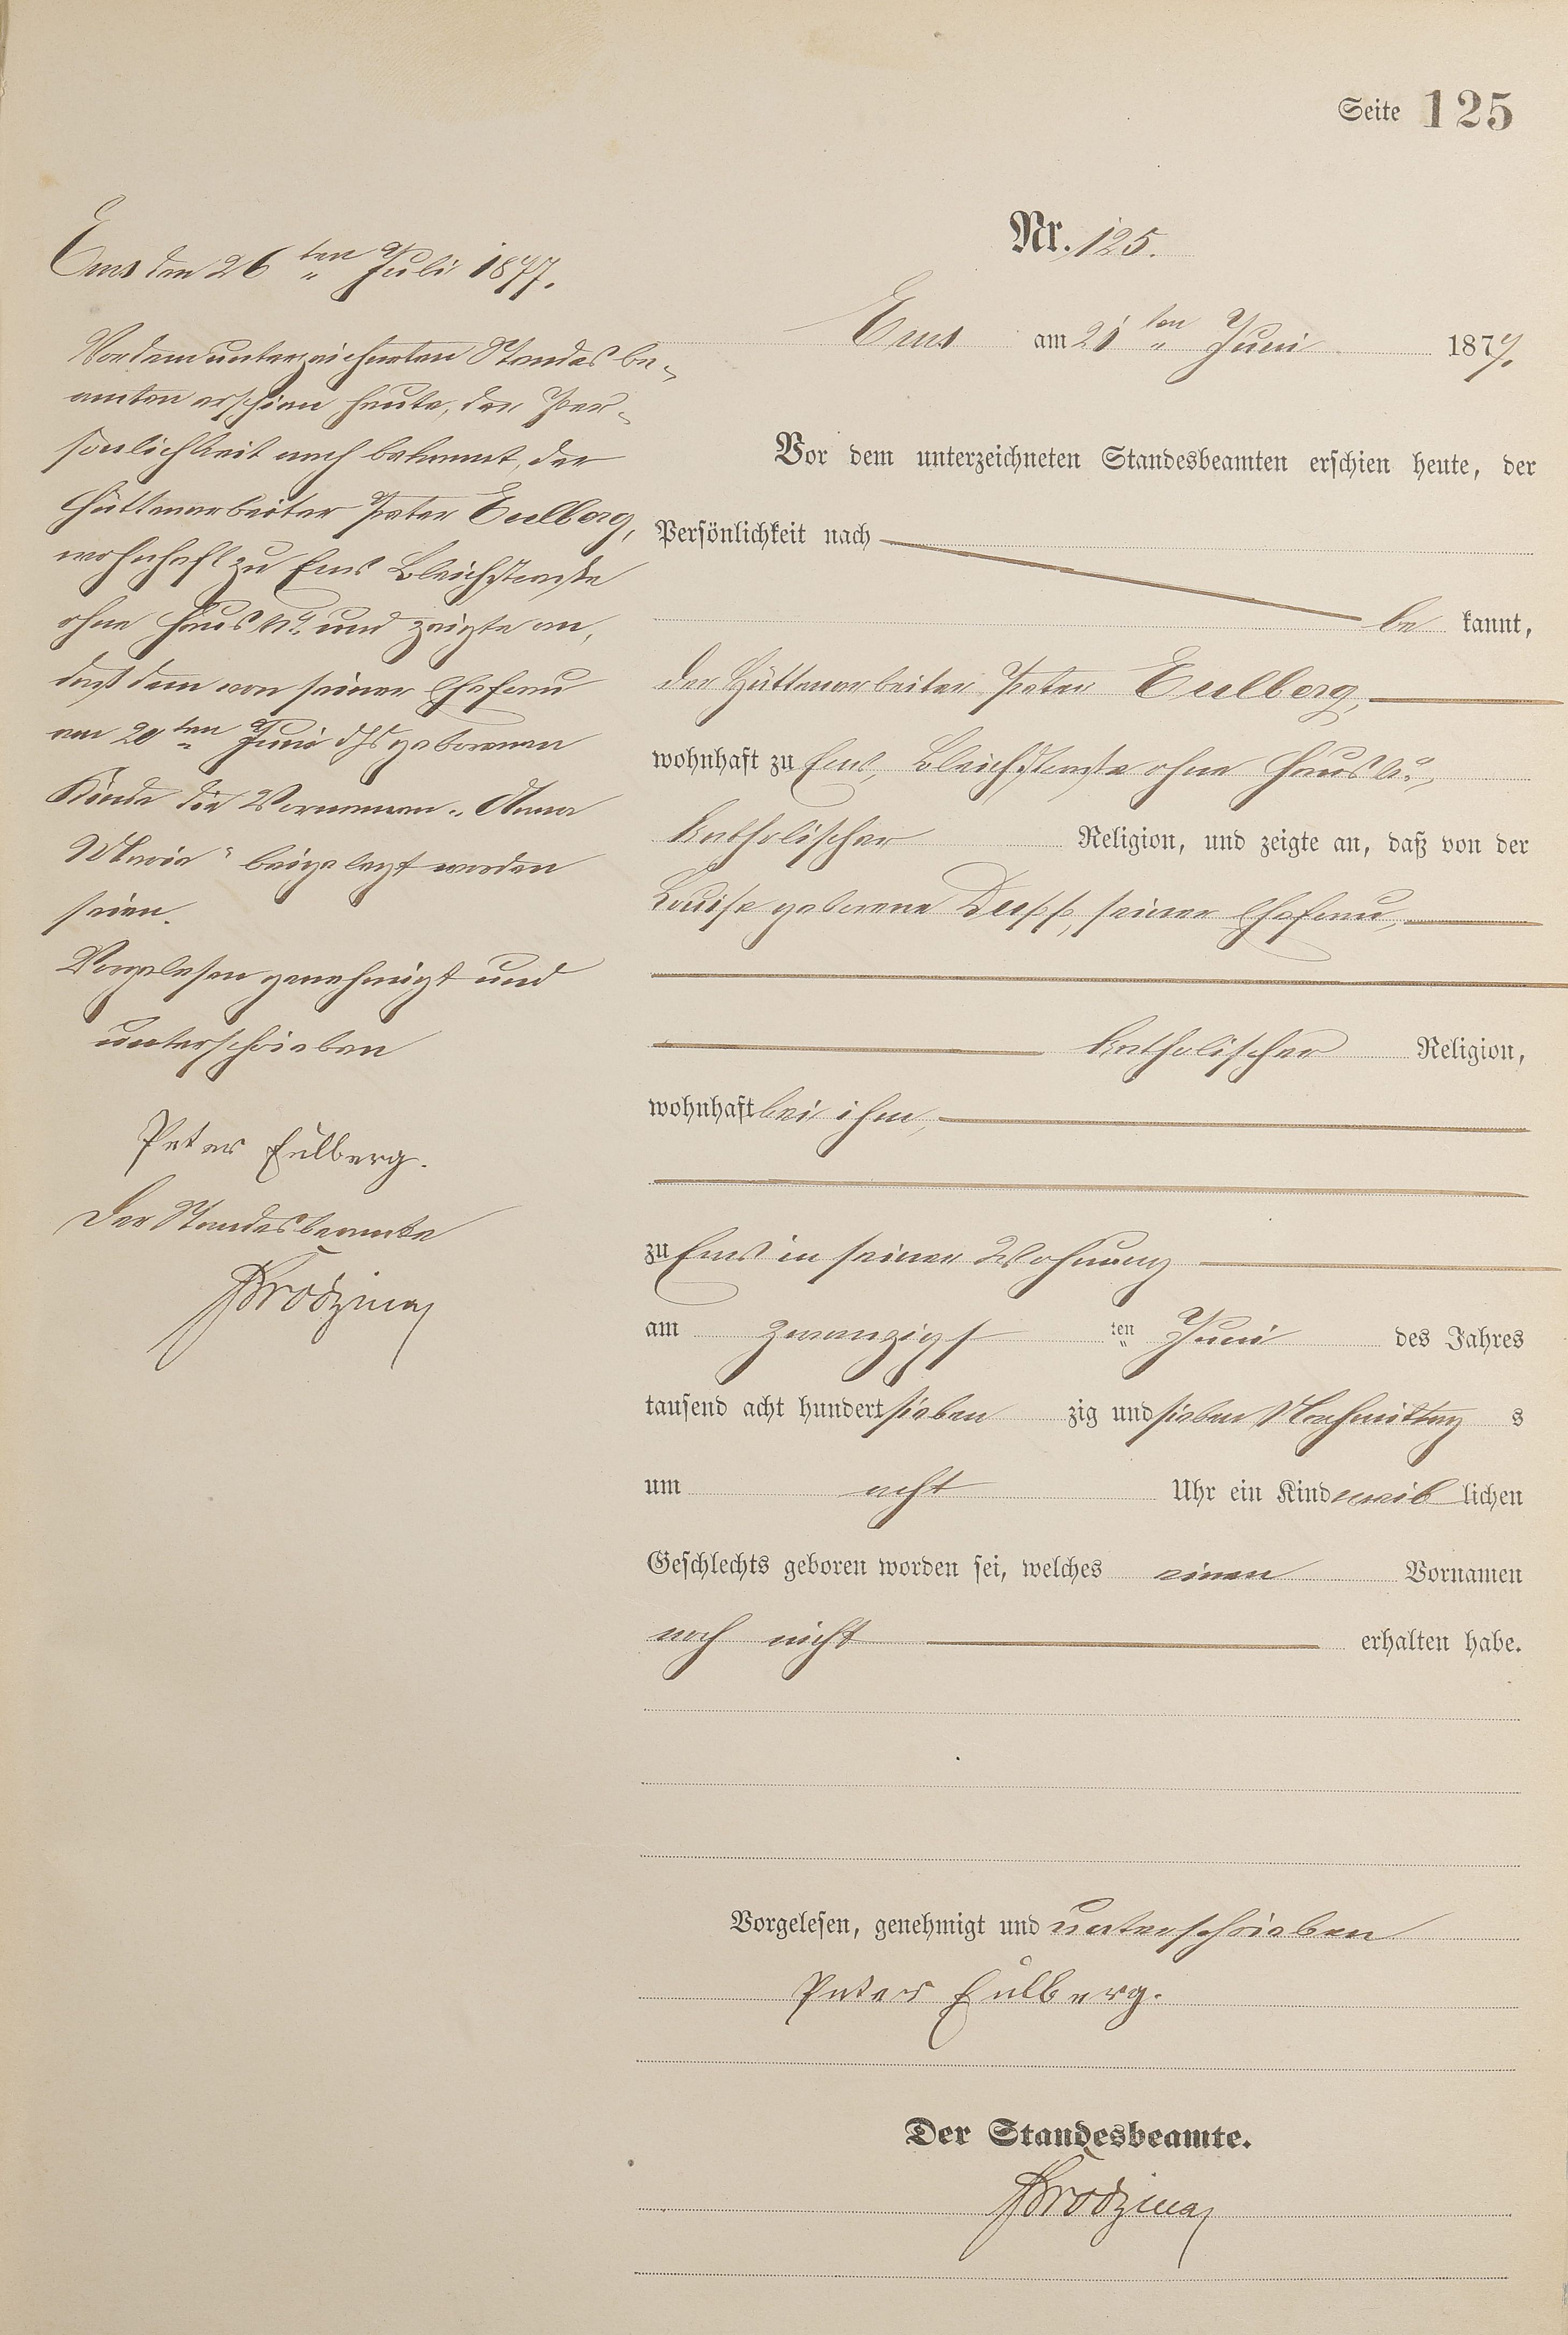 Seite 125
Ems den 26ten Juli 1877.
Vor dem unterzeichneten Standesbe-
amten erschien heute, der Per-
sönlichkeit nach bekannt, der
Hüttenarbeiter Peter Eulberg,
wohnhaft zu Ems Bleichstraße
ohne Haus No. und zeigte an,
daß dem von seiner Ehefrau
am 20ten Juni dJs geborenen
Kinde die Vornamen „Anna
Maria“ beigelegt worden
seien.
Vorgelesen genehmigt und
unterschrieben
Peter Eulberg.
Der Standesbeamte
Nr. 125.
Ems am 21ten Juni 1877.
Vor dem unterzeichneten Standesbeamten erschien heute, der
Persönlichkeit nach
be kannt,
der Hüttenarbeiter Peter Eulberg,
wohnhaft zu Ems, Bleichstraße ohne Haus No.,
katholischer Religion, und zeigte an, daß von der
Louise geborene seiner Ehefrau,
katholischer Religion,
wohnhaft bei ihm,
zu Ems in seiner Wohnung
am zwanzigsten Juni des Jahres
tausend acht hundert sieben zig und sieben Nachmittag s
um acht Uhr ein Kind weib lichen
Geschlechts geboren worden sei, welches einen Vornamen
noch nicht erhalten habe.
Vorgelesen, genehmigt und unterschrieben
Peter Eulberg.
Der Standesbeamte.